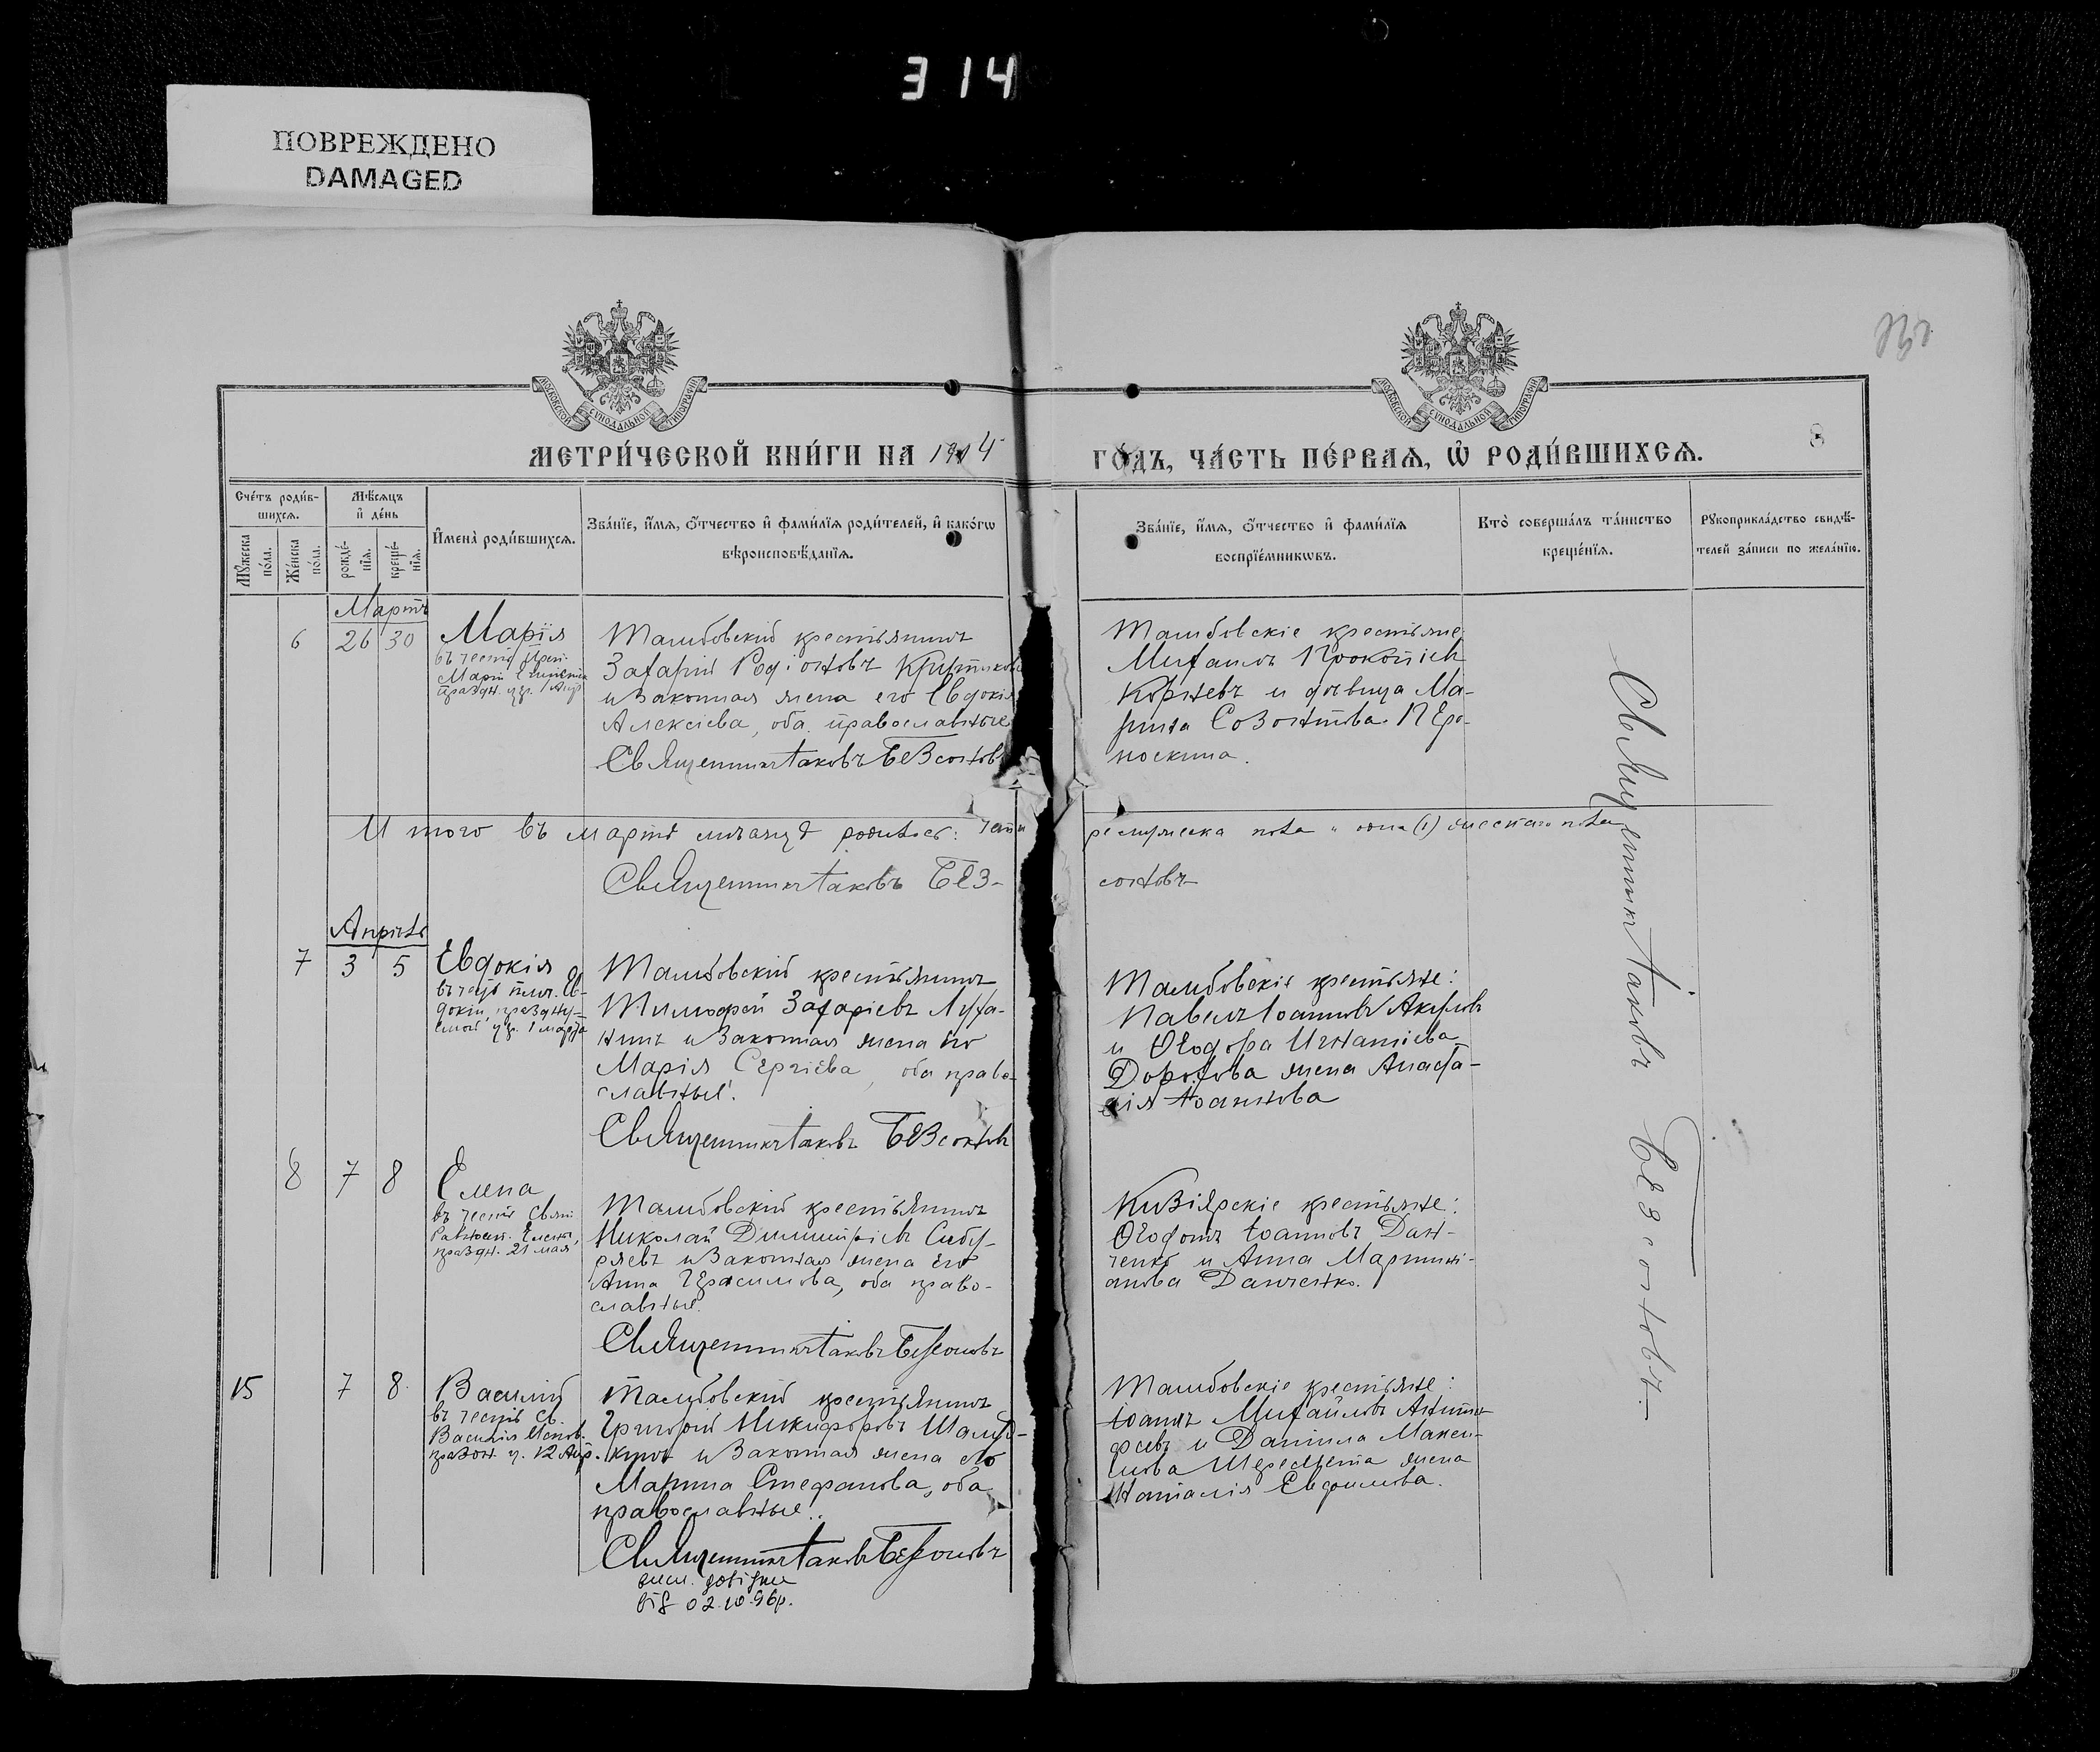 314
ПОВРЕЖДЕНО
DAMAGED
МОСКОВСКОЙ СѴНОДАЛЬНОЙ ТИПОГРАФІИ
МОСКОВСКОЙ СѴНОДАЛЬНОЙ ТИПОГРАФІИ
МЕТРИ́ЧЕСКОЙ КНИ́ГИ НА 1914
ГО́ДЪ, ЧА́СТЬ ПЕ́РВАѦ, Ѡ҆ РОДИ́ВШИХСѦ.
8
Сче́тъ роди́в-
шихсѧ.
Мꙋ́жеска по́ла.
Же́нска по́ла.
Мѣ́сѧцъ
и҆ де́нь
рожде́-
нїѧ.
креще́-
нїѧ.
И҆мена̀ роди́вшихсѧ.
Зва́нїе, и҆́мѧ, ѻ҆́тчество и҆ фами́лїѧ роди́телей, и҆ како́гѡ
вѣроисповѣ́данїѧ.
Зва́нїе, и҆́мѧ, ѻ҆́тчество и҆ фами́лїѧ
воспрїе́мникѡвъ.
Кто̀ соверша́лъ та́инство
креще́нїѧ.
Рꙋкоприкла́дство свидѣ́-
телей за́писи по жела́нїю.
Мартъ
6 26 30
Марія
въ честь Преп.
Маріи Египетск
праздн. 1 Апр
Тамбовскій крестьянинъ
Захарій Родіоновъ
и законная жена его Евдокія
Алексіева, оба православные
Священникъ Іаковъ Безсонов
Тамбовскіе крестьяне
Михаилъ Прокопіев
Коржевъ и дѣвица Ма-
рина Созонтова
Итого въ мартѣ мѣсяцѣ родилось: четы
ре мужеска пола и одна (1) женскаго пола
Священникъ Іаковъ Без-
соновъ
Апрѣль
7 3 5
Евдокія
въ честь Ев-
докіи, праздну-
емой 1 марта
Тамбовскій крестьянинъ
Тимофей Захаріевъ
и законная жена его
Марія Сергіева, оба право-
славные.
Священникъ Іаковъ Безсоновъ
Тамбовскіе крестьяне:
Павелъ Іоанновъ Акуловъ
и Ѳеодора Игнатіева
Дорохова жена Анаста-
сія Іоаннова
8 7 8
Елена
въ честь Свят.
Равноап. Елены,
праздн. 21 мая
Тамбовскій крестьянинъ
Николай Димитріевъ Сибу-
ряевъ и законная жена его
Анна Герасимова, оба право-
славные.
Священникъ Іаковъ Безсоновъ
Кизіярскіе крестьяне:
Ѳеодотъ Іоанновъ Дан-
ченко и Анна Мартини-
анова Данченко.
15 7 8
Василій
въ честь св.
Василія Испов.
праздн. 12 Апр.
Тамбовскій крестьянинъ
Григорій Никифоровъ
и законная жена его
Марина Стефанова, оба
православные.
Священникъ Іаковъ Безсоновъ
Тамбовскіе крестьяне:
Іоаннъ Михайловъ
и Даніила Макси-
мова жена
Наталія Евфимова.
Священникъ Іаковъ Безсоновъ.
від 02.10.96р.